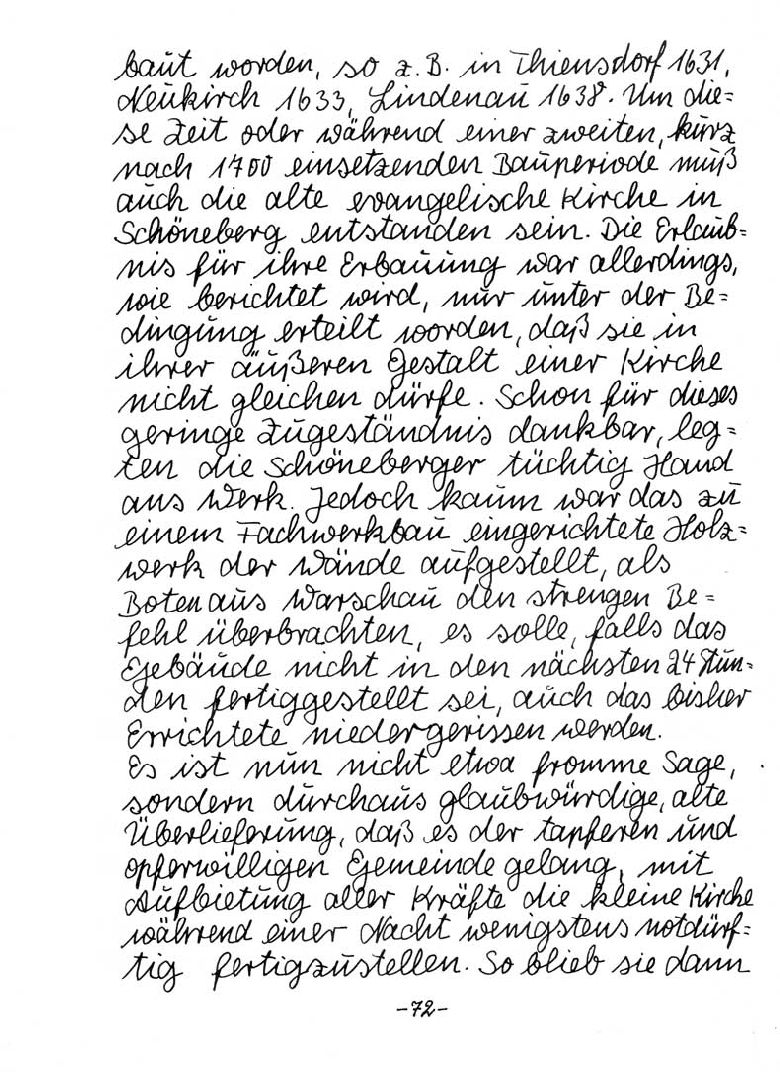 baut worden, so z.B. in Thiensdorf 1631,
Neukirch 1633, Lindenau 1638. Um die=
se Zeit oder während einer zweiten, kurz
nach 1700 einsetzenden Bauperiode muß
auch die alte evangelische Kirche in
Schöneberg entstanden sein. Die Erlaub=
nis für ihre Erbauung war allerdings,
wie berichtet wird, nur unter der Be=
dingung erteilt worden, daß sie in
ihrer äußeren Gestalt einer Kirche
nicht gleichen dürfe. Schon für dieses
geringe Zugeständnis dankbar, leg=
ten die Schöneberger tüchtig Hand
ans Werk. Jedoch kaum war das zu
einem Fachwerkbau eingerichtete Holz=
werk der Wände aufgestellt, als
Boten aus Warschau den strengen Be=
fehl überbrachten, es solle, falls das
Gebäude nicht in den nächsten 24 Stun=
den fertiggestellt sei, auch das bisher
Errichtete niedergerissen werden.
Es ist nun nicht etwa fromme Sage,
sondern durchaus glaubwürdige, alte
Überlieferung, daß es der tapferen und
opferwilligen Gemeinde gelang, mit
Aufbietung aller Kräfte die kleine Kirche
während einer Nacht wenigstens notdürf=
tig fertigzustellen. So blieb sie dann
-72-